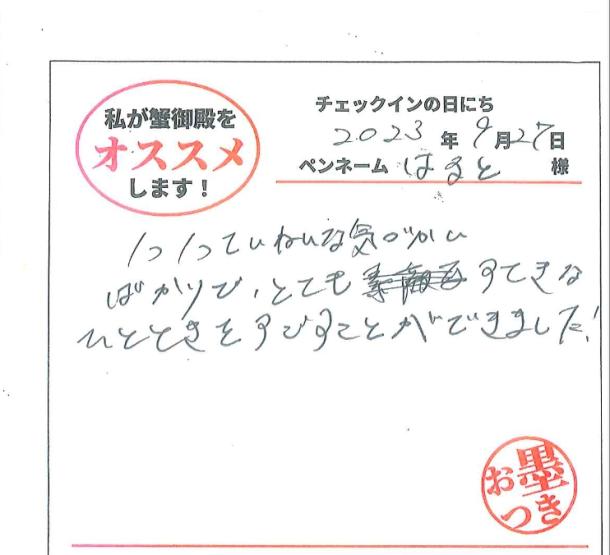 私が蟹御殿を
オススメ
します!
チェックインの日にち
2023年9月27日
ペンネーム はると 様
1つ1つていねいな気づかい
ばかりで、とても すてきな
ひとときをすごすことができました!
お墨つき